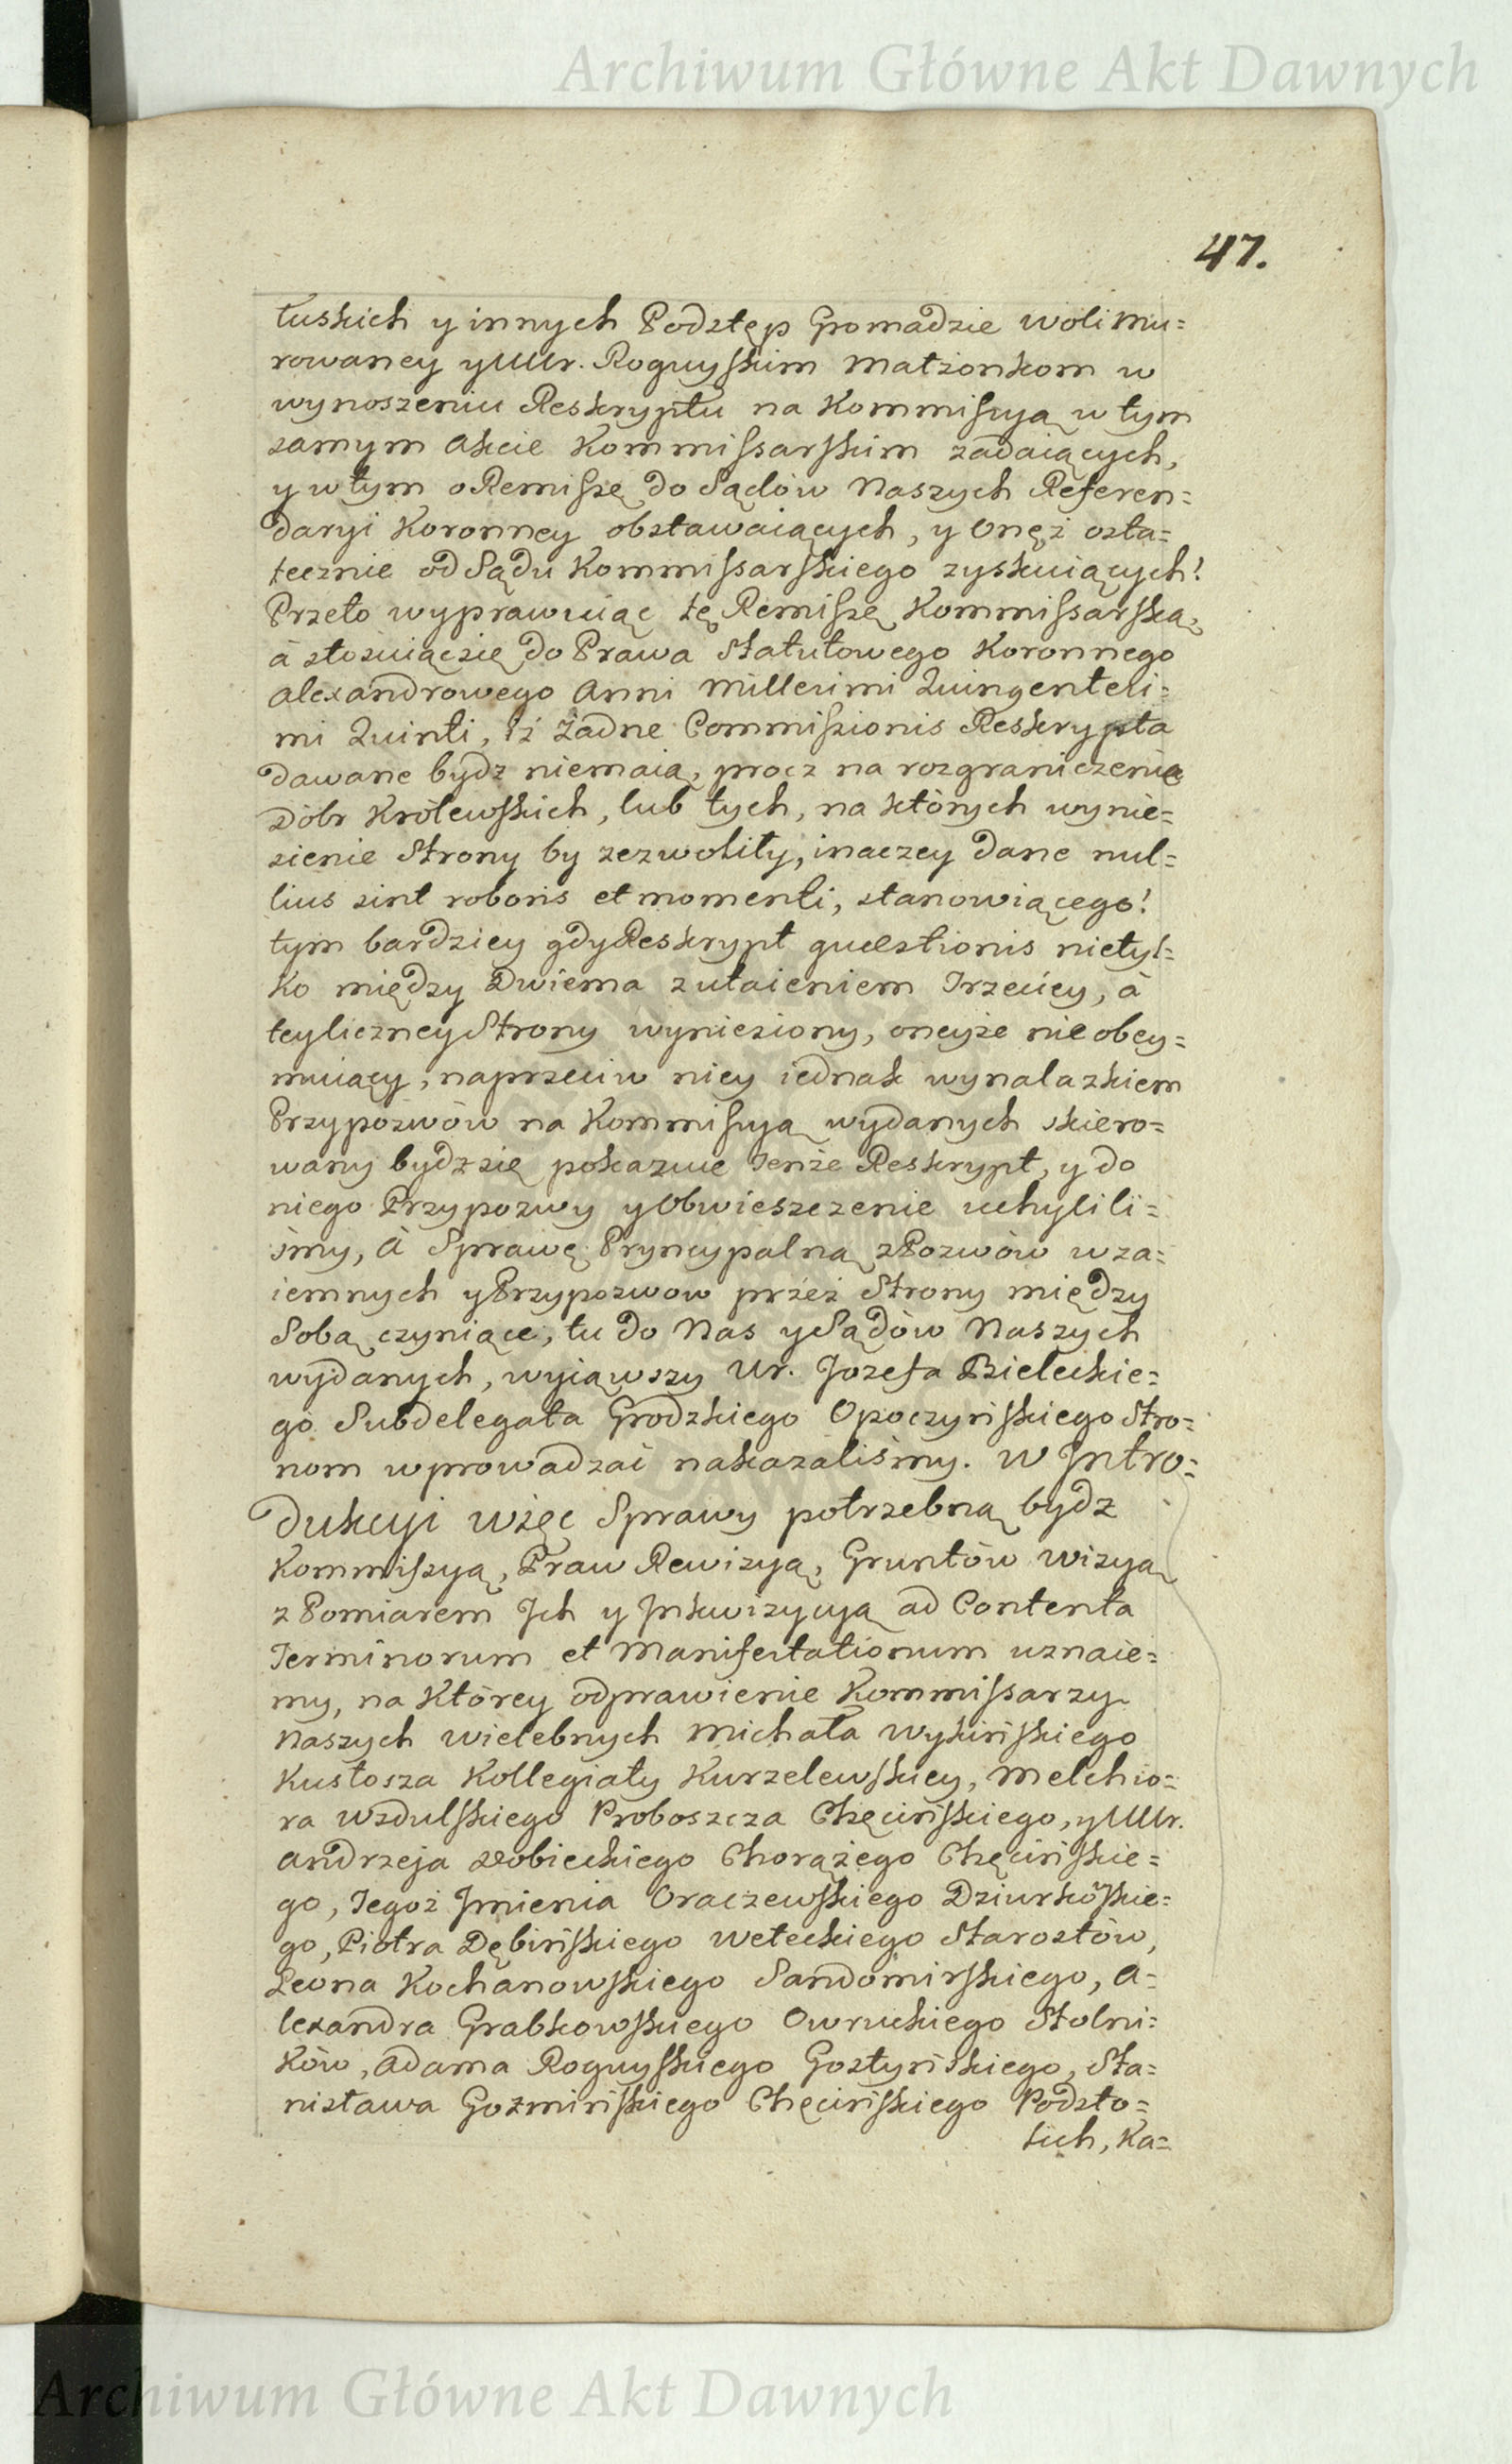 Archiwum Główne Akt Dawnych
47.
łuskich y innych Podstęp Gromadzie Woli mu=
rowaney y UUr. Roguyskim Małżonkom w
wynoszeniu Reskryptu na Kommissyą w tym
samym Akcie Kommissarskim zadaiących,
y w tym o Remissę do Sądów Naszych Referen=
daryi Koronney obstawaiących, y Onęż osta=
tecznie od Sądu Kommissarskiego zyskuiących!
Przeto wyprawuiąc tę Remissę Kommissarską,
à stosuiąc się do Prawa Statutowego Koronnego
Alexandrowego Anni Millesimi Quingentesi=
mi Quinti, Iż żadne Commissionis Reskrypta
dawane bydz niemaią, procz na rozgraniczenie
Dóbr Królewskich, lub tych, na których wynie=
sienie Strony by zezwoliły, inaczey dane nul=
lius sint roboris et momenti, stanowiącego!
tym bardziey gdy Reskrypt quæstionis nietyl=
ko między Dwiema z utaieniem Trzeciey, à
teyliczney Strony wyniesiony, oneyże nie obey=
muiący, naprzeciw niey iednak wynalazkiem
Przypozwów na Kommissyą wydanych skiero=
wany bydz się pokazuie Tenże Reskrypt, y do
niego Przypozwy y Obwieszczenie uchylili=
śmy, à Sprawę Pryncypalną z Pozwów wza=
iemnych y Przypozwow przez Strony między
Sobą czyniące, tu do Nas y Sądów Naszych
wydanych, wyiąwszy Ur. Jozefa Bieleckie=
go Subdelegata Grodzkiego Opoczyńskiego Stro=
nom wprowadzać nakazaliśmy. W Intro=
dukcyi więc Sprawy potrzebną bydz
Kommissyą, Praw Rewizyą, Gruntów wizyą
z Pomiarem Ich y Inkwizycyą ad Contenta
Terminorum et Manifestationum uznaie=
my, na Którey odprawienie Kommissarzy
Naszych wielebnych Michała Wykińskiego
Kustosza Kollegiaty Kurzelewskiey, Melchio=
ra Wzdulskiego Proboszcza Chęcińskiego, y UUr.
Andrzeja Dobieckiego Chorążego Chęcińskie=
go, Tegoż Imienia Oraczewskiego Dziurkowskie=
go, Piotra Dębińskiego Wełeckiego Starostów,
Leona Kochanowskiego Sandomirskiego, A=
lexandra Grabkowskiego Owruckiego Stolni=
ków, Adama Roguyskiego Gostyńskiego, Sta=
nisława Gozmińskiego Chęcińskiego Podsto=
lich, Ka=
Archiwum Główne Akt Dawnych